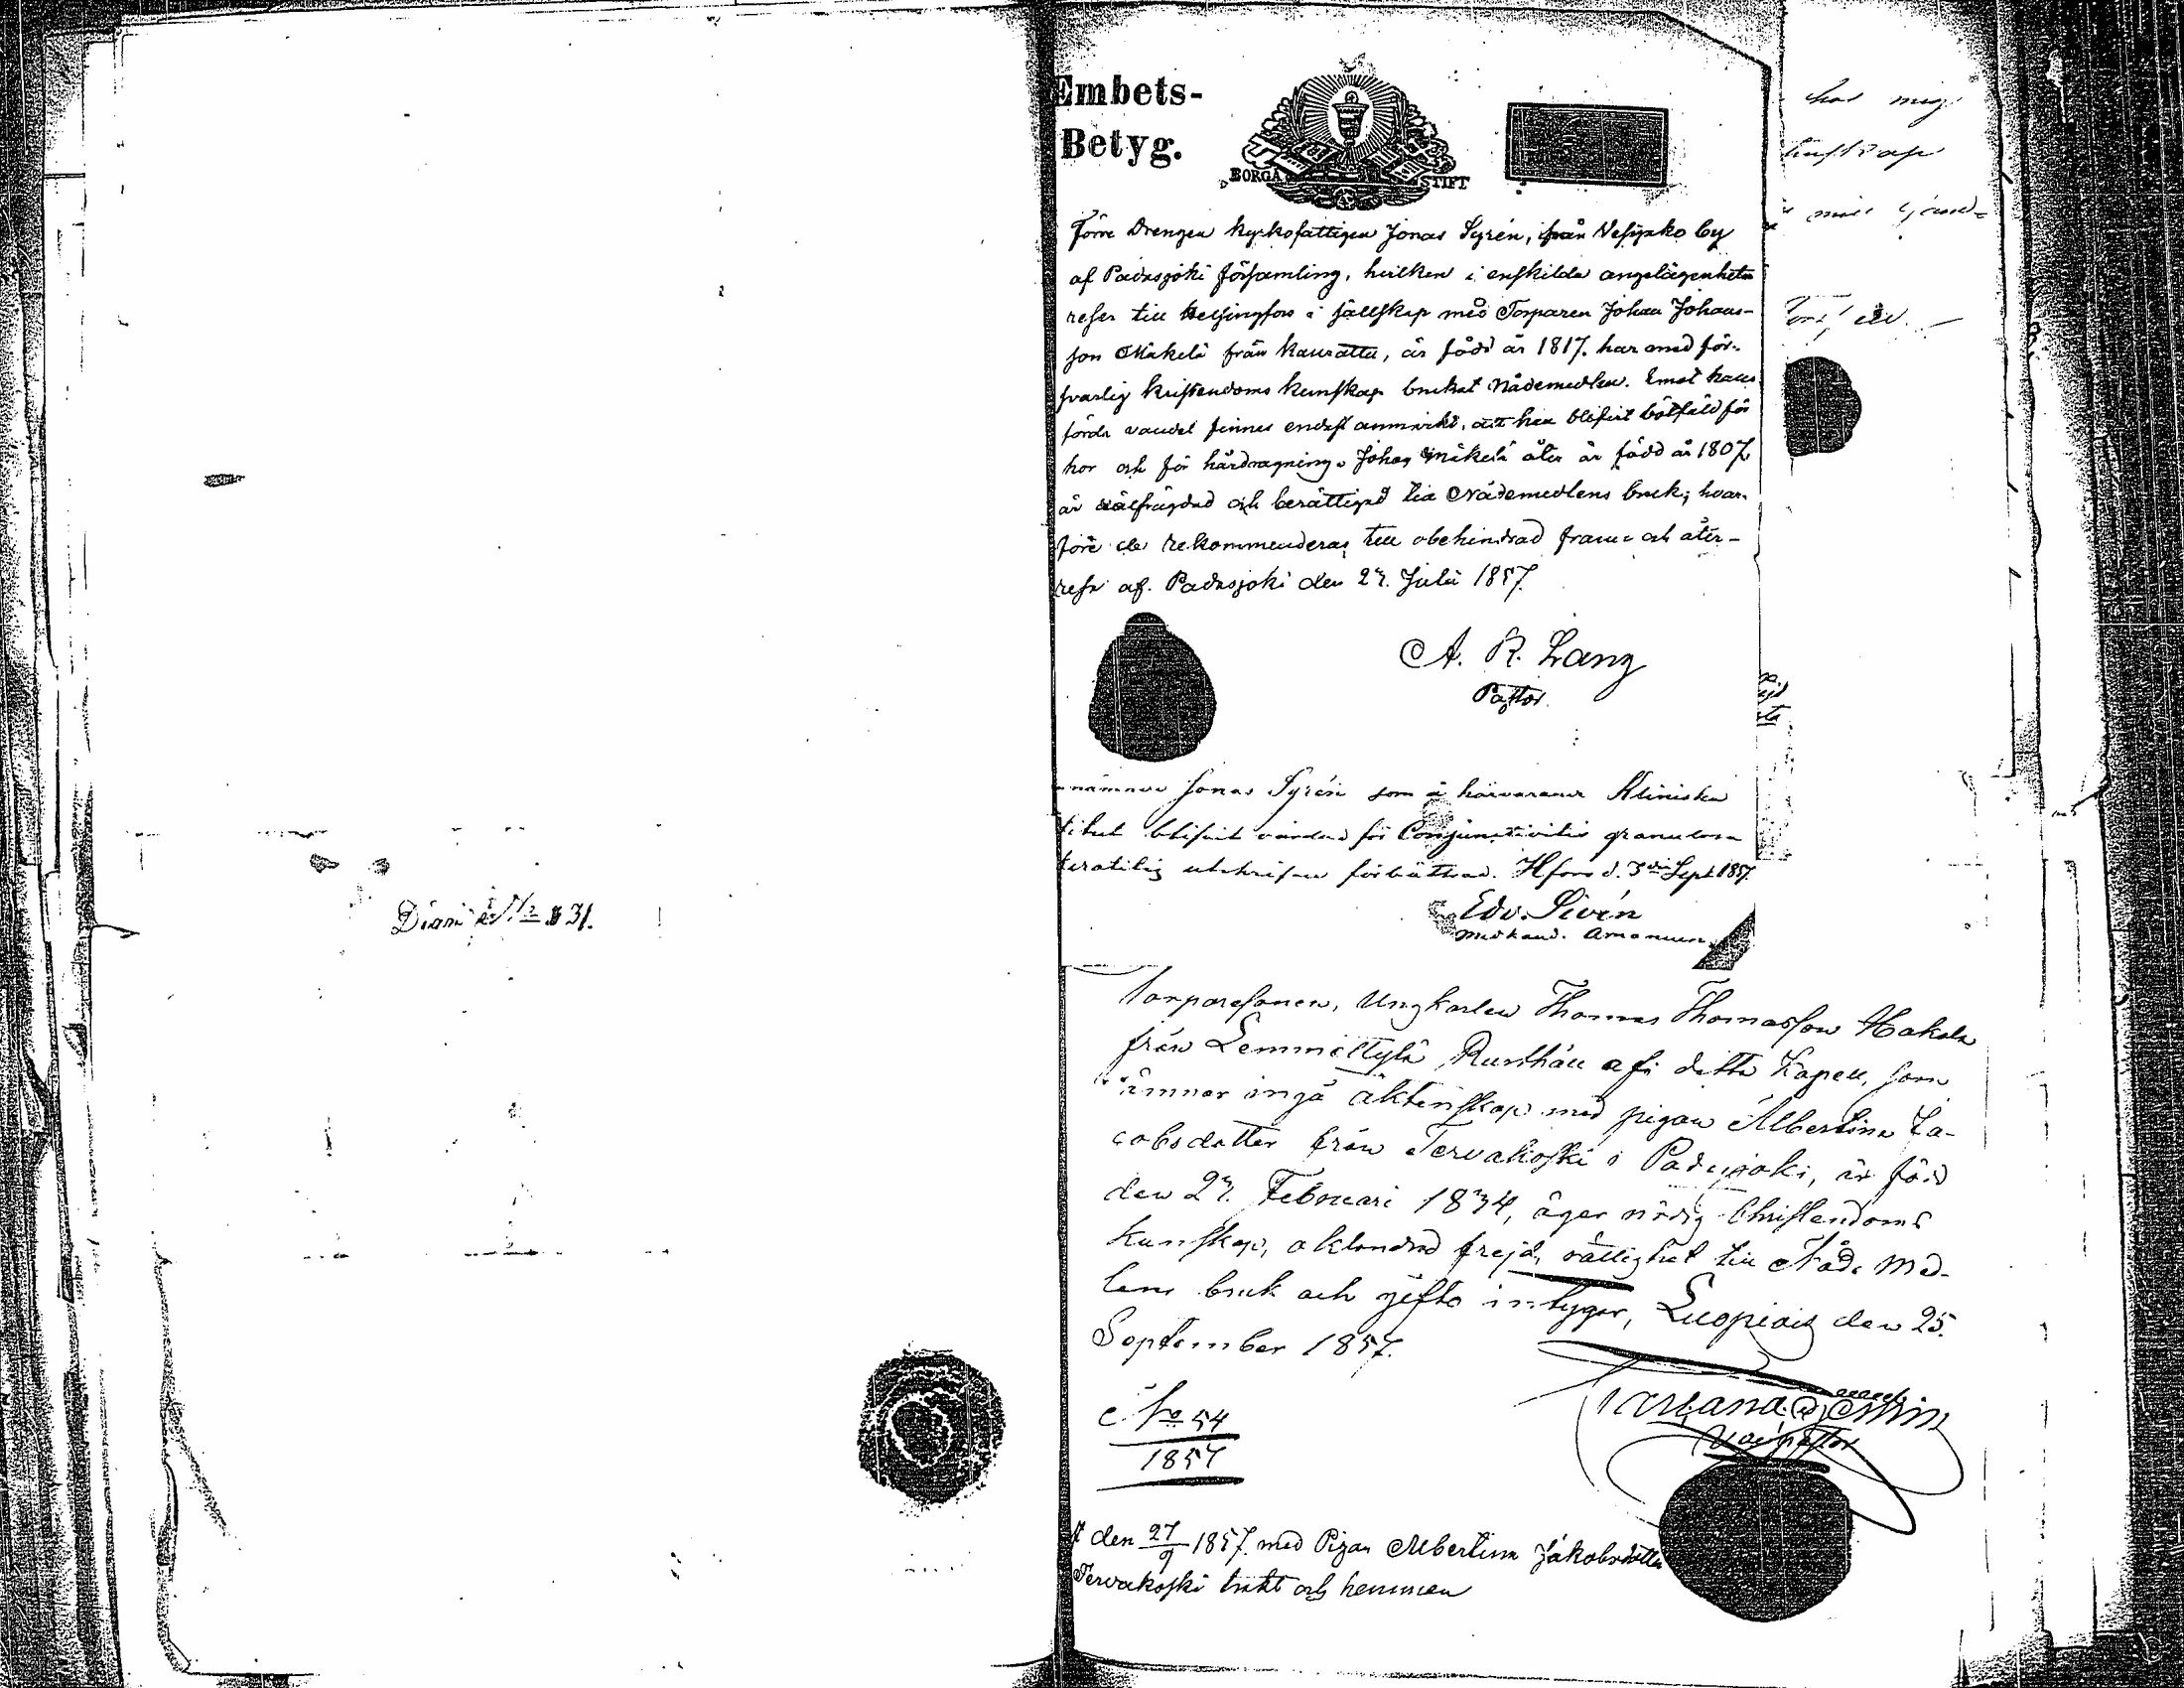 Diarii No 831.
Embets-
Betyg.
BORGÅ STIFT
Förre Drengen kyrkofattigen Jonas Syrén, från Vesijako by
af Padasjoki församling, hvilken i enskilda angelägenheter
reser till Helsingfors i sällskap med Torparen Johan Johans-
son Mäkelä från Kauratta, är född år 1817. har med för-
svarlig kristendoms kunskap brukat Nådemedlen. Emot hans
förda vandel finnes endast anmärkt, att han blifvit bötfäld för
hor och för hårdragning. Johan Mäkelä åter är född år 1807,
är välfrägdad och berättigad till Nådemedlens bruk; hvar-
före de rekommenderas till obehindrad fram- och åter-
resa af. Padasjoki den 27. Julii 1857.
A. R. Lang
Pastor.
nämnde Jonas Syrén som å härvarande Kliniska
titut blifvit vårdad för Conjunctivitis granulosa
utskrifves förbättrad. Hfors d. 3 Sept. 1857.
Edv. Sivén
Med. kand. Amanuens.
Torparesonen, Ungkarlen Thomas Thomasson Hakala
från Lemmettylä Rusthåll af detta Kapell, som
ämnar ingå äktenskap med pigan Albertina Ja-
cobsdotter från Tervakoski i Padasjoki, är född
den 27. Februari 1834, äger nödig Christendoms
kunskap, oklandrad frejd, rättighet till Nåde Med-
lens bruk och gifto intygar, Luopiois den 25.
September 1857.
No 54
1857
den 27/9 1857. med Pigan Albertina Jakobsdotter
Tervakoski och hemman
has mig
kunskap